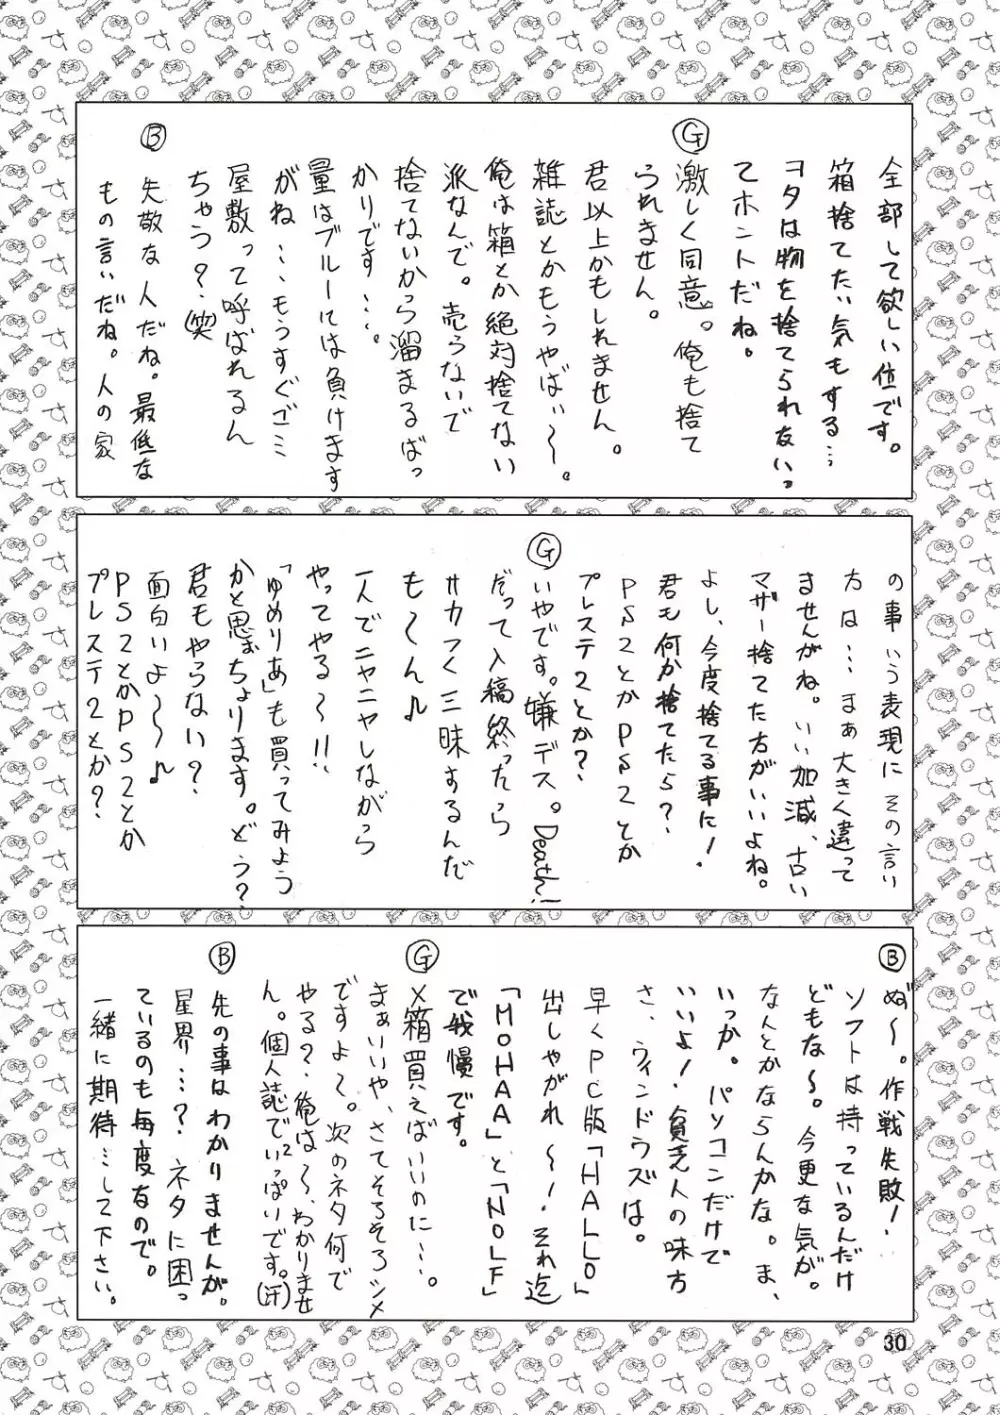 全部して欲しい位です。
箱捨てたい気もする…
ヲタは物を捨てられないっ
てホントだね。
Ⓖ
激しく同意。俺も捨て
られません。
君以上かもしれません。
雑誌とかもうやばい〜。
俺は箱とか絶対捨てない
派なんで。売らないで
捨てないから溜まるばっ
かりです…。
量はブルーには負けます
がね…もうすぐゴミ
屋敷って呼ばれるん
ちゃう?(笑)
Ⓑ
失敬な人だね。最低な
もの言いだね。人の家
の事いう表現にその言い
方は…まぁ大きく違って
ませんがね。いい加減、古い
マザー捨てた方がいいよね。
よし、今度捨てる事に!
君も何か捨てたら?
PS2とかPS2とか
プレステ2とか?
Ⓖ
いやです。嫌デス。Death!
だって入稿終ったら
サカつく三昧するんだ
も〜ん♪
一人でニヤニヤしながら
やってやる〜!!
「ゆめりあ」も買ってみよう
かと思ぉちょります。どう?
君もやらない?
面白いよ〜〜♪
PS2とかPS2とか
プレステ2とか?
Ⓑ
ぬ〜。作戦失敗!
ソフトは持っているんだけ
どもな〜。今更な気が。
なんとかならんかな。ま、
いっか。パソコンだけで
いいよ!貧乏人の味方
さ、ウィンドウズは。
早くPC版「HALLO」
出しやがれ〜!それ迄
「MOHAA」と「NOLF」
で我慢です。
Ⓖ
×箱買えばいいのに…。
まぁいいや、さてそろそろシメ
ですよ〜。次のネタ何で
やる?俺は〜、わかりませ
ん。個人誌でいっぱいです。(汗)
Ⓑ
先の事はわかりませんが。
星界…?ネタに困っ
ているのも毎度なので。
一緒に期待…して下さい。
30